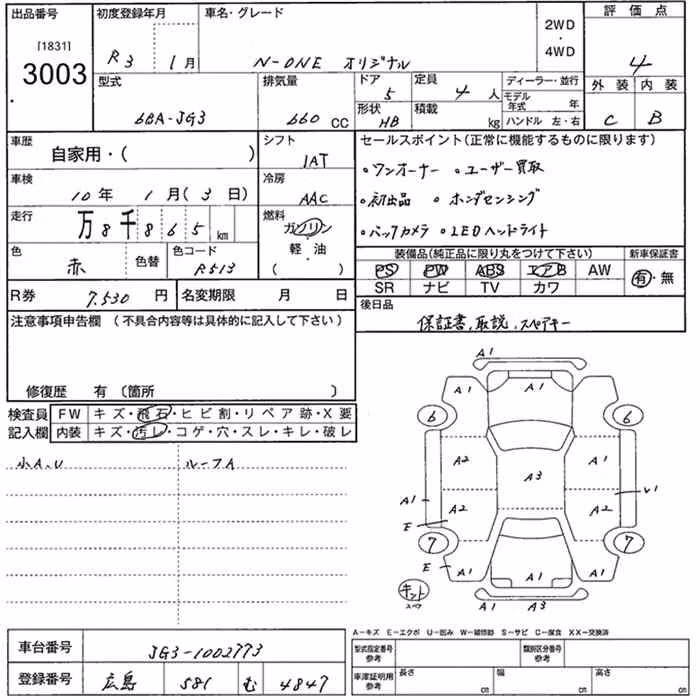 出品番号 初度登録年月 車名・グレード 2WD・4WD 評価点
[1831] 3003 R3 1月 N-ONE オリジナル 4
型式 排気量 ドア 5 定員 4人 ディーラー・並行 外装 内装
6BA-JG3 660 CC 形状 HB 積載 kg モデル年式 年 C B
ハンドル 左・右
車歴 自家用・( ) シフト 1AT セールスポイント(正常に機能するものに限ります)
車検 10年 1月(3日) 冷房 AAC
・ワンオーナー ・ユーザー買取
・初出品 ・ホンダセンシング
・バックカメラ ・LEDヘッドライト
走行 万8千865km 燃料 ガソリン 軽・油 ( )
色 赤 色替 色コード R513
装備品(純正品に限り丸をつけて下さい) 新車保証書
PS PW ABS エアB AW 有・無
SR ナビ TV カワ
R券 7.530円 名変期限 月 日
後日品
保証書,取説,スペアキー
注意事項申告欄(不具合内容等は具体的に記入して下さい)
修復歴 有(箇所 )
検査員記入欄 FW キズ・飛石・ヒビ割・リペア跡・X要
内装 キズ・汚レ・コゲ・穴・スレ・キレ・破レ
小A.U ルーフA
A1
A1 A1
6 6
A2 A1
A3
A1 A2 A2
E
7 7
E A1 A1 A1
キット
A1 A3
A-キズ E-エクボ U-凹み W-補修跡 S-サビ C-腐食 XX-交換済
車台番号 JG3-1002773
型式指定番号 参考 類別区分番号 参考
登録番号 広島 581 む 4847
車庫証明用 参考 長さ cm 幅 cm 高さ cm